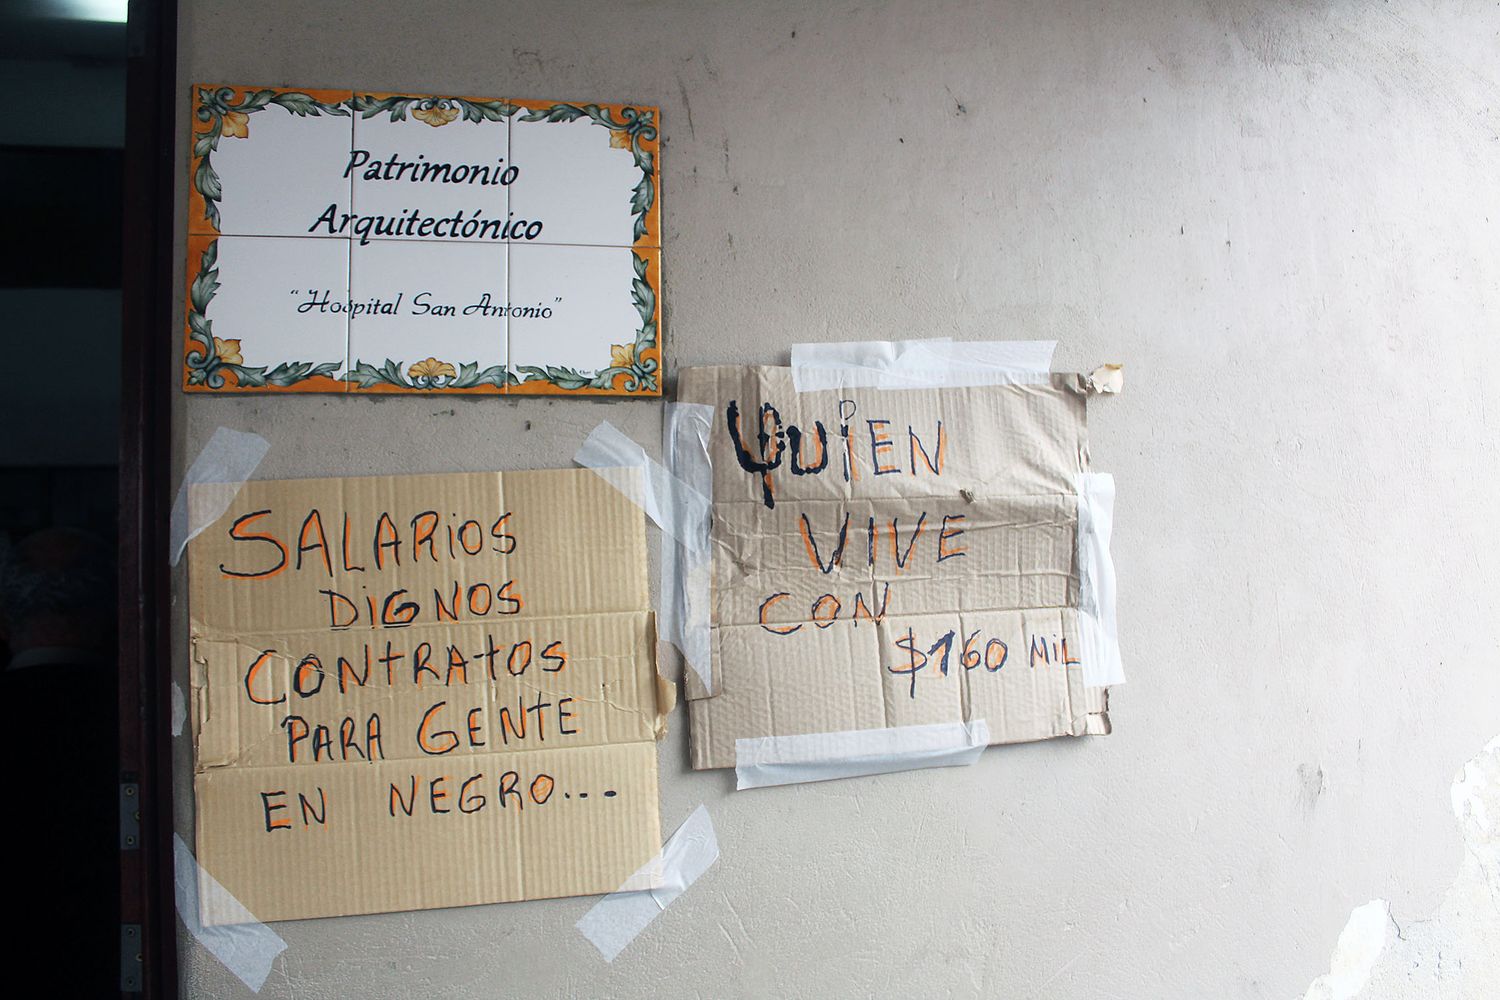 Patrimonio
Arquitectónico
"Hospital San Antonio"
SALARIOS
DIGNOS
CONTRATOS
PARA GENTE
EN NEGRO...
QUIEN
VIVE
CON
$160 MIL